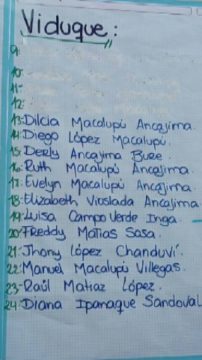 Viduque:
9-
10-
11-
12-
13-Dilcia Macalupú Ancajima.
14-Diego López Macalupú.
15-Derly Ancajima Bure.
16-Ruth Macalupú Ancajima.
17-Evelyn Macalupú Ancajima.
18-Elizabeth Viuslada Ancajima
19-Luisa Campo Verde Inga.
20-Freddy Matias Sosa.
21-Jhony López Chanduví.
22-Manuel Macalupú Villegas.
23-Raúl Matiaz López.
24-Diana Ipanaque Sandoval